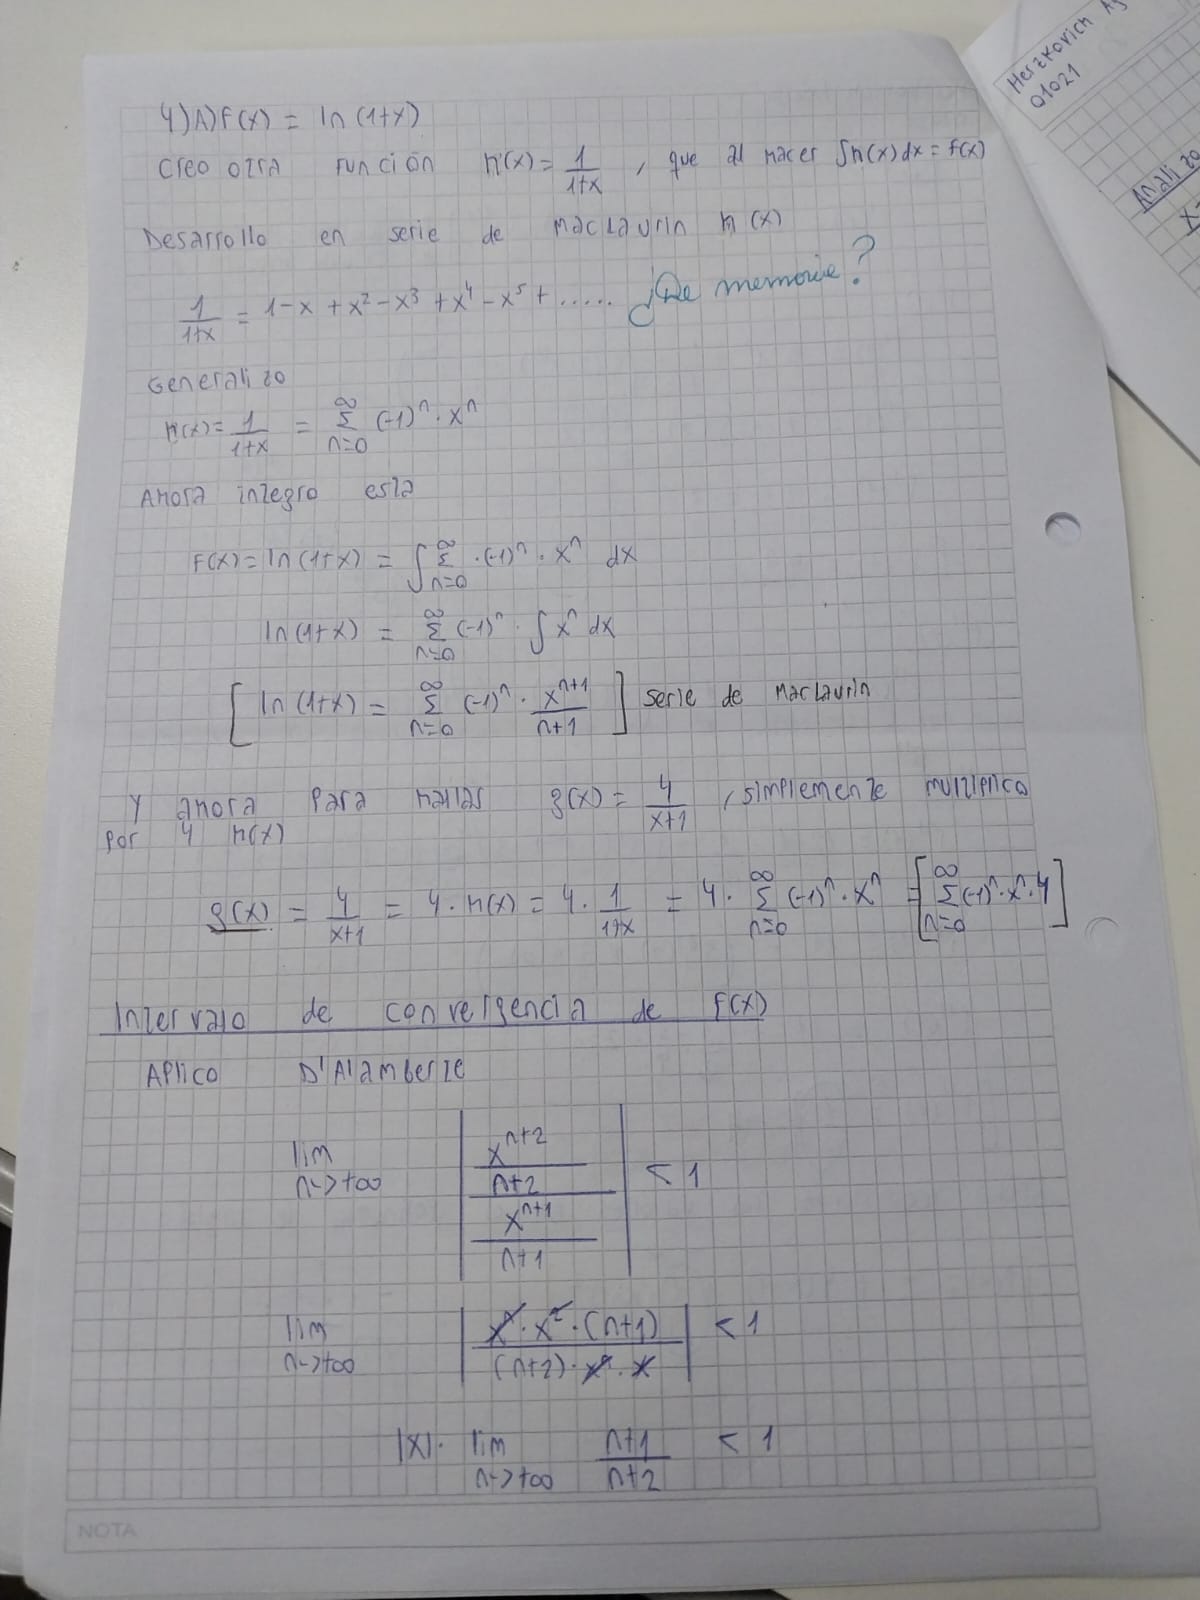 4)A) F(x) = ln(1+x)
Creo otra función h(x) = 1/(1+x), que al hacer ∫h(x)dx = f(x)
Desarrollo en serie de maclaurin h(x)
1/(1+x) = 1-x+x²-x³+x⁴-x⁵+..... ¿De memoria?
Generalizo
h(x) = 1/(1+x) = ∑_{n=0}^{∞} (-1)ⁿ · xⁿ
Ahora integro esta
F(x) = ln(1+x) = ∫ ∑_{n=0}^{∞} · (-1)ⁿ · xⁿ dx
ln(1+x) = ∑_{n=0}^{∞} (-1)ⁿ · ∫ xⁿ dx
[ ln(1+x) = ∑_{n=0}^{∞} (-1)ⁿ · xⁿ⁺¹/(n+1) ] serie de maclaurin
Y ahora para hallar g(x) = 4/(x+1), simplemente multiplico
por 4 h(x)
g(x) = 4/(x+1) = 4 · h(x) = 4 · 1/(1+x) = 4 · ∑_{n=0}^{∞} (-1)ⁿ · xⁿ = [ ∑_{n=0}^{∞} (-1)ⁿ · xⁿ · 4 ]
Intervalo de convergencia de F(x)
Aplico D'Alamberte
lim_{n->+∞} | (xⁿ⁺²/(n+2)) / (xⁿ⁺¹/(n+1)) | < 1
lim_{n->+∞} | (xⁿ · x² · (n+1)) / ((n+2) · xⁿ · x) | < 1
|x| · lim_{n->+∞} (n+1)/(n+2) < 1
NOTA
Herszkovich
01021
Analizo